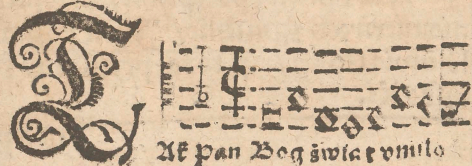 TAk Pan Bog świat vmiło